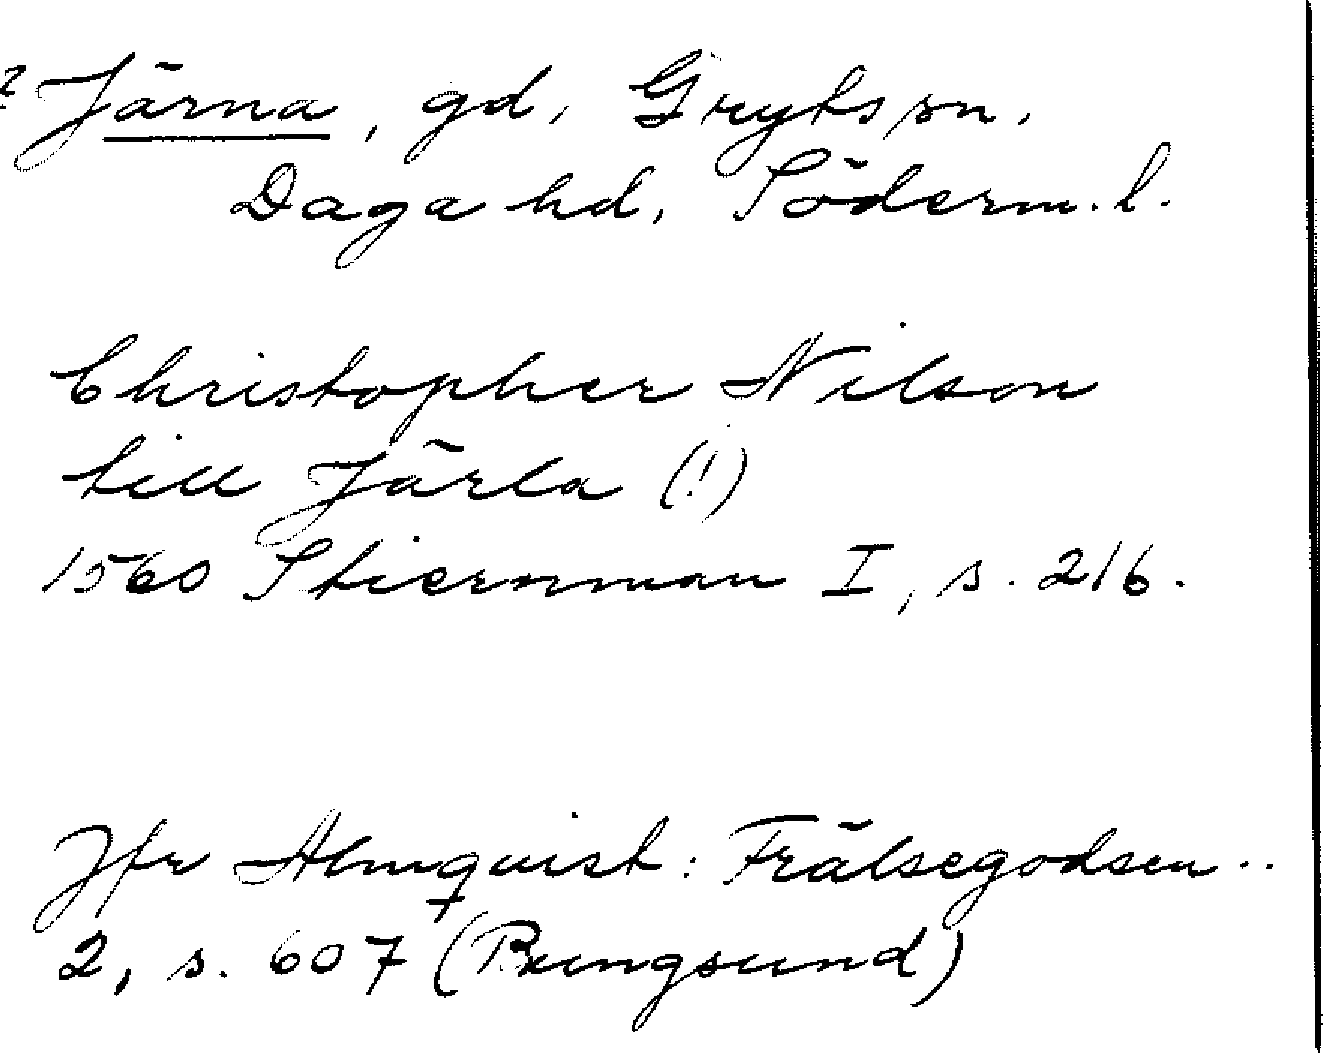 ? Järna, gd, Gryts sn,
Daga hd, Söderm. l.
Christopher Nilson
till Järla (!)
1560 Stiernman I, s. 216.
Jfr Almquist: Frälsegodsen ..
2, s. 607 (Rungsund)